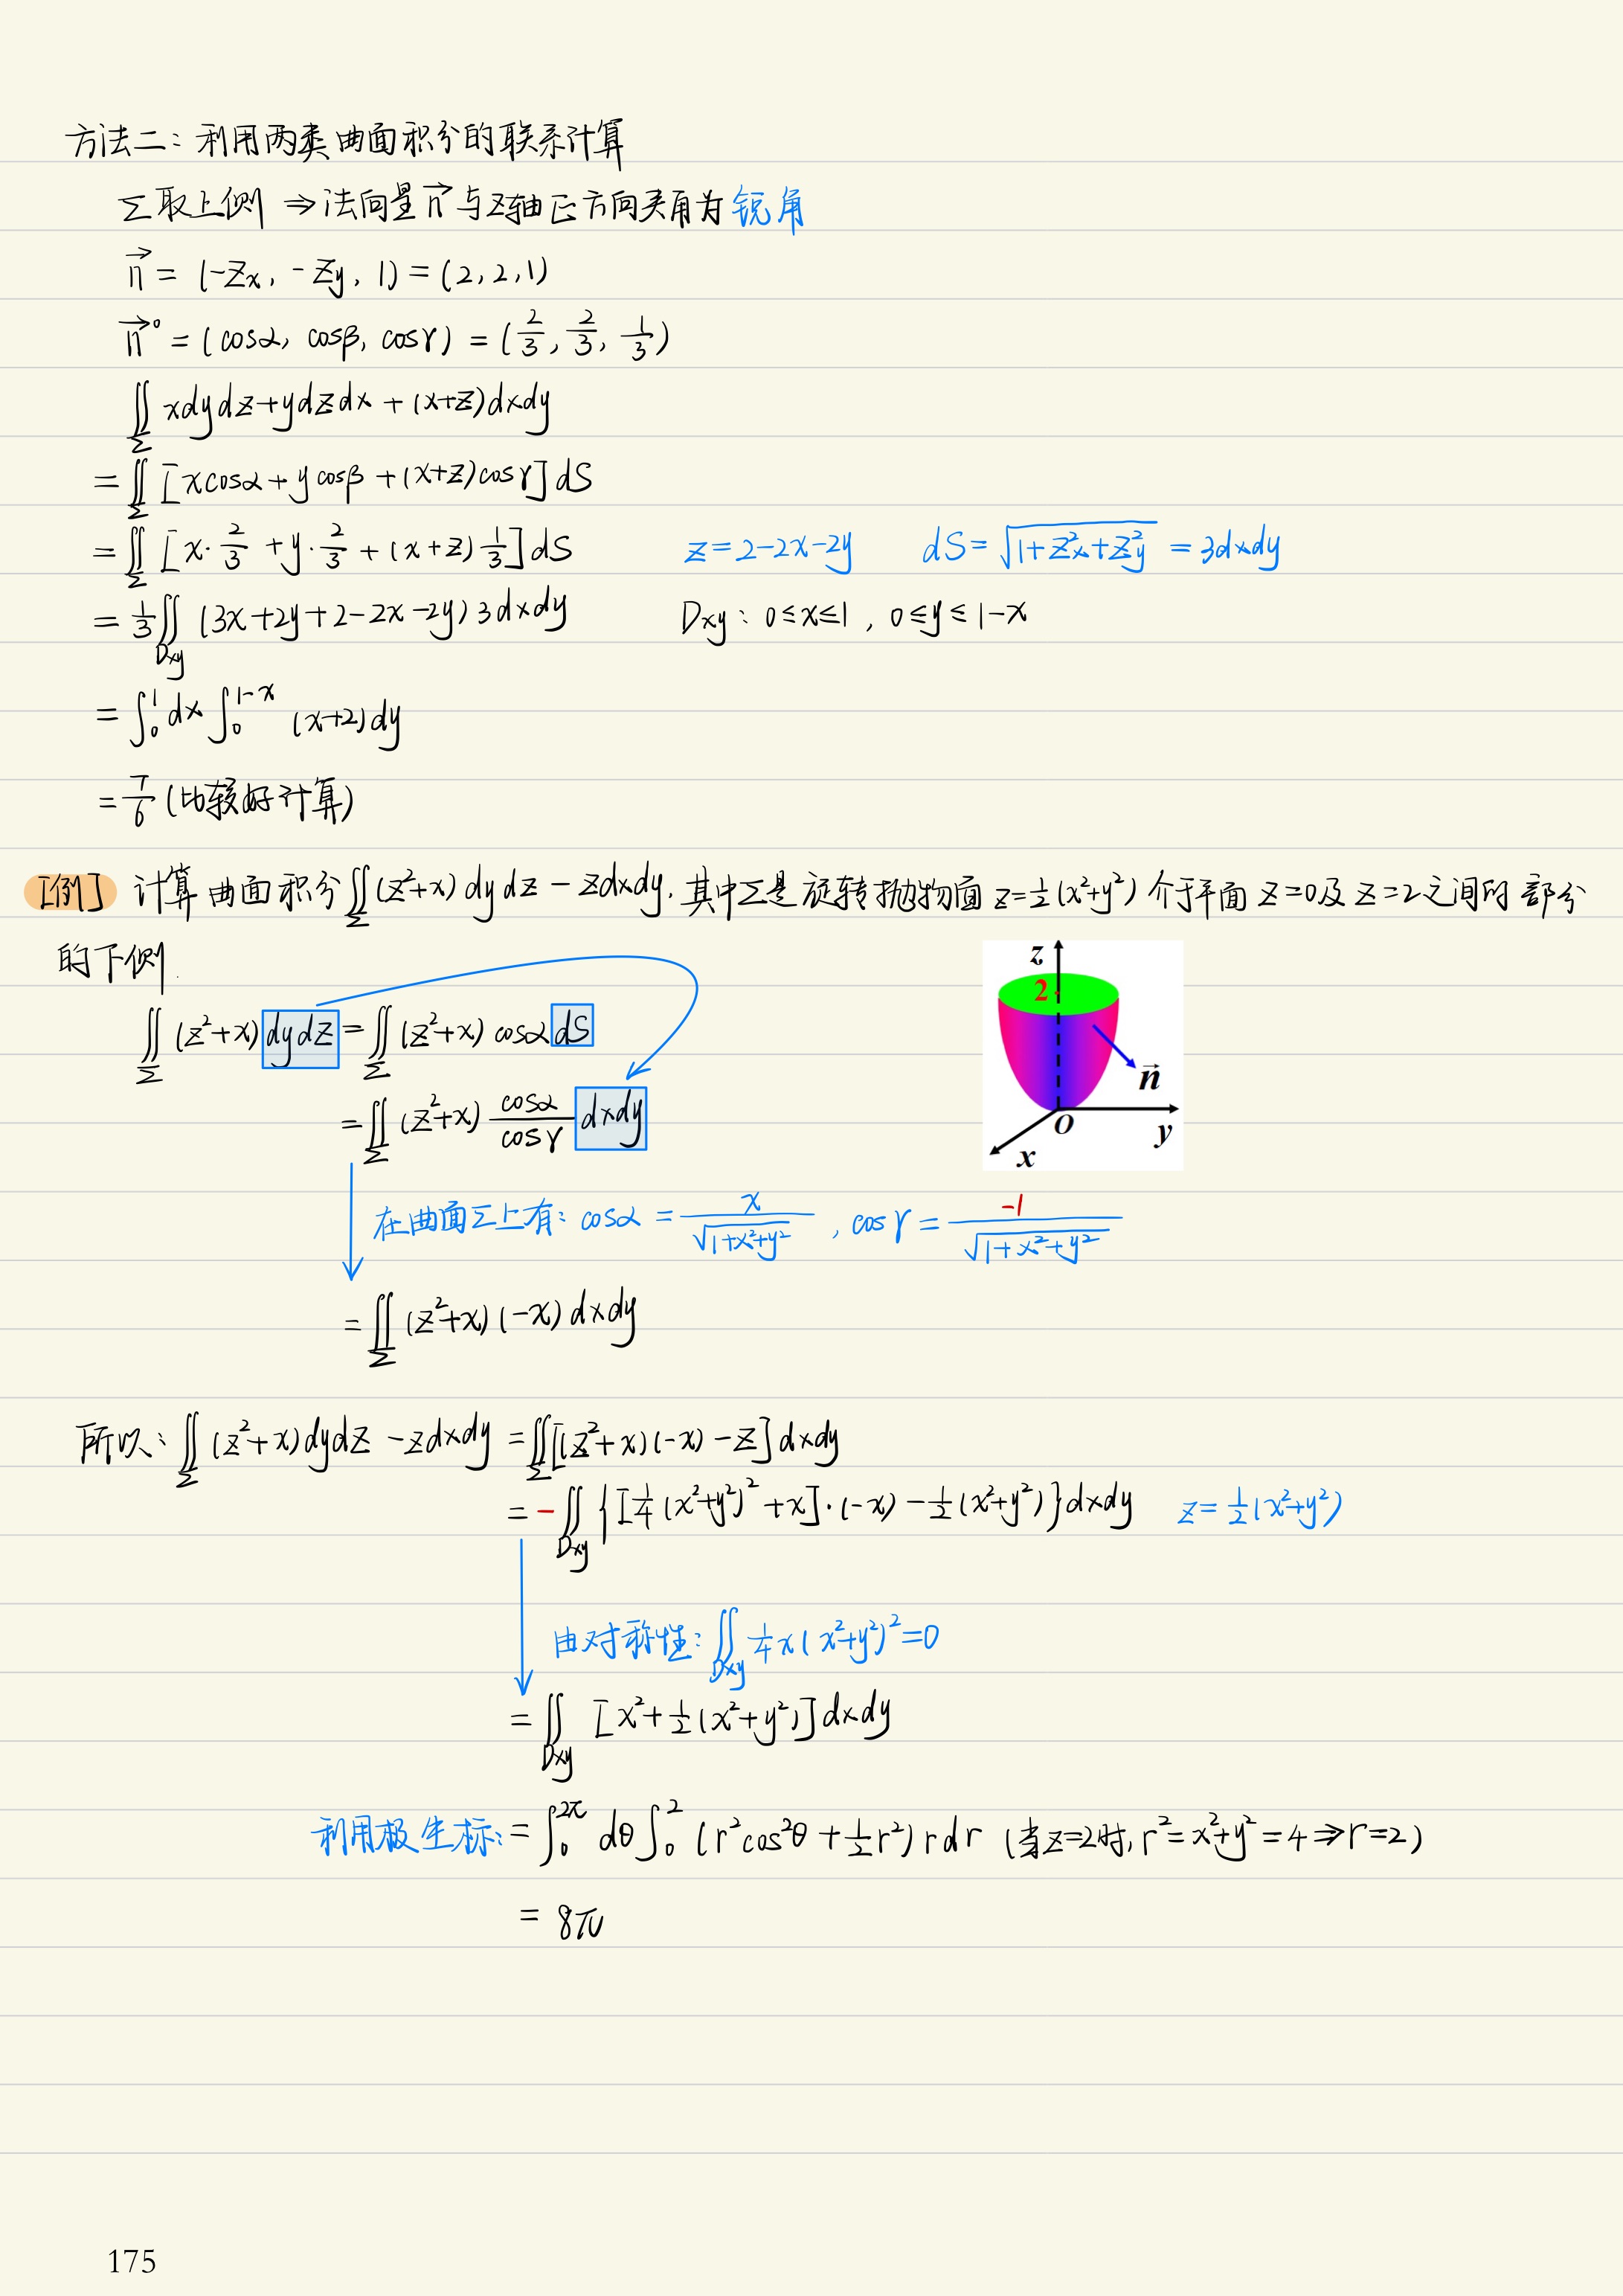 方法二：利用两类曲面积分的联系计算
Σ取上侧 ⇒ 法向量 n⃗ 与z轴正方向夹角为锐角
n⃗ = (-Zx, -Zy, 1) = (2, 2, 1)
n⃗° = (cosα, cosβ, cosγ) = (2/3, 2/3, 1/3)
∬_Σ xdydz+ydzdx+(x+z)dxdy
= ∬_Σ [xcosα+ycosβ+(x+z)cosγ]dS
= ∬_Σ [x·2/3+y·2/3+(x+z)1/3]dS z=2-2x-2y dS=√(1+Z²x+Z²y) =3dxdy
= 1/3∬_Dxy (3x+2y+2-2x-2y)3dxdy Dxy: 0≤x≤1, 0≤y≤1-x
= ∫₀¹dx∫₀^(1-x) (x+2)dy
= 7/6 (比较好计算)
[例] 计算曲面积分∬_Σ(z²+x)dydz-zdxdy, 其中Σ是旋转抛物面 z=1/2(x²+y²) 介于平面 z=0及z=2之间的部分
的下侧.
z
2
n⃗
O
y
x
∬_Σ (z²+x)dydz = ∬_Σ (z²+x)cosα dS
= ∬_Σ (z²+x) cosα/cosγ dxdy
在曲面Σ上有: cosα = x/√(1+x²+y²), cosγ = -1/√(1+x²+y²)
= ∬_Σ (z²+x)(-x)dxdy
所以: ∬_Σ (z²+x)dydz-zdxdy = ∬_Σ[(z²+x)(-x)-z]dxdy
= -∬_Dxy {[1/4(x²+y²)²+x]·(-x)-1/2(x²+y²)}dxdy z=1/2(x²+y²)
由对称性: ∬_Dxy 1/4x(x²+y²)²=0
= ∬_Dxy [x²+1/2(x²+y²)]dxdy
利用极坐标: = ∫₀^2π dθ∫₀² (r²cos²θ+1/2r²)rdr (当z=2时, r²=x²+y²=4⇒r=2)
= 8π
175